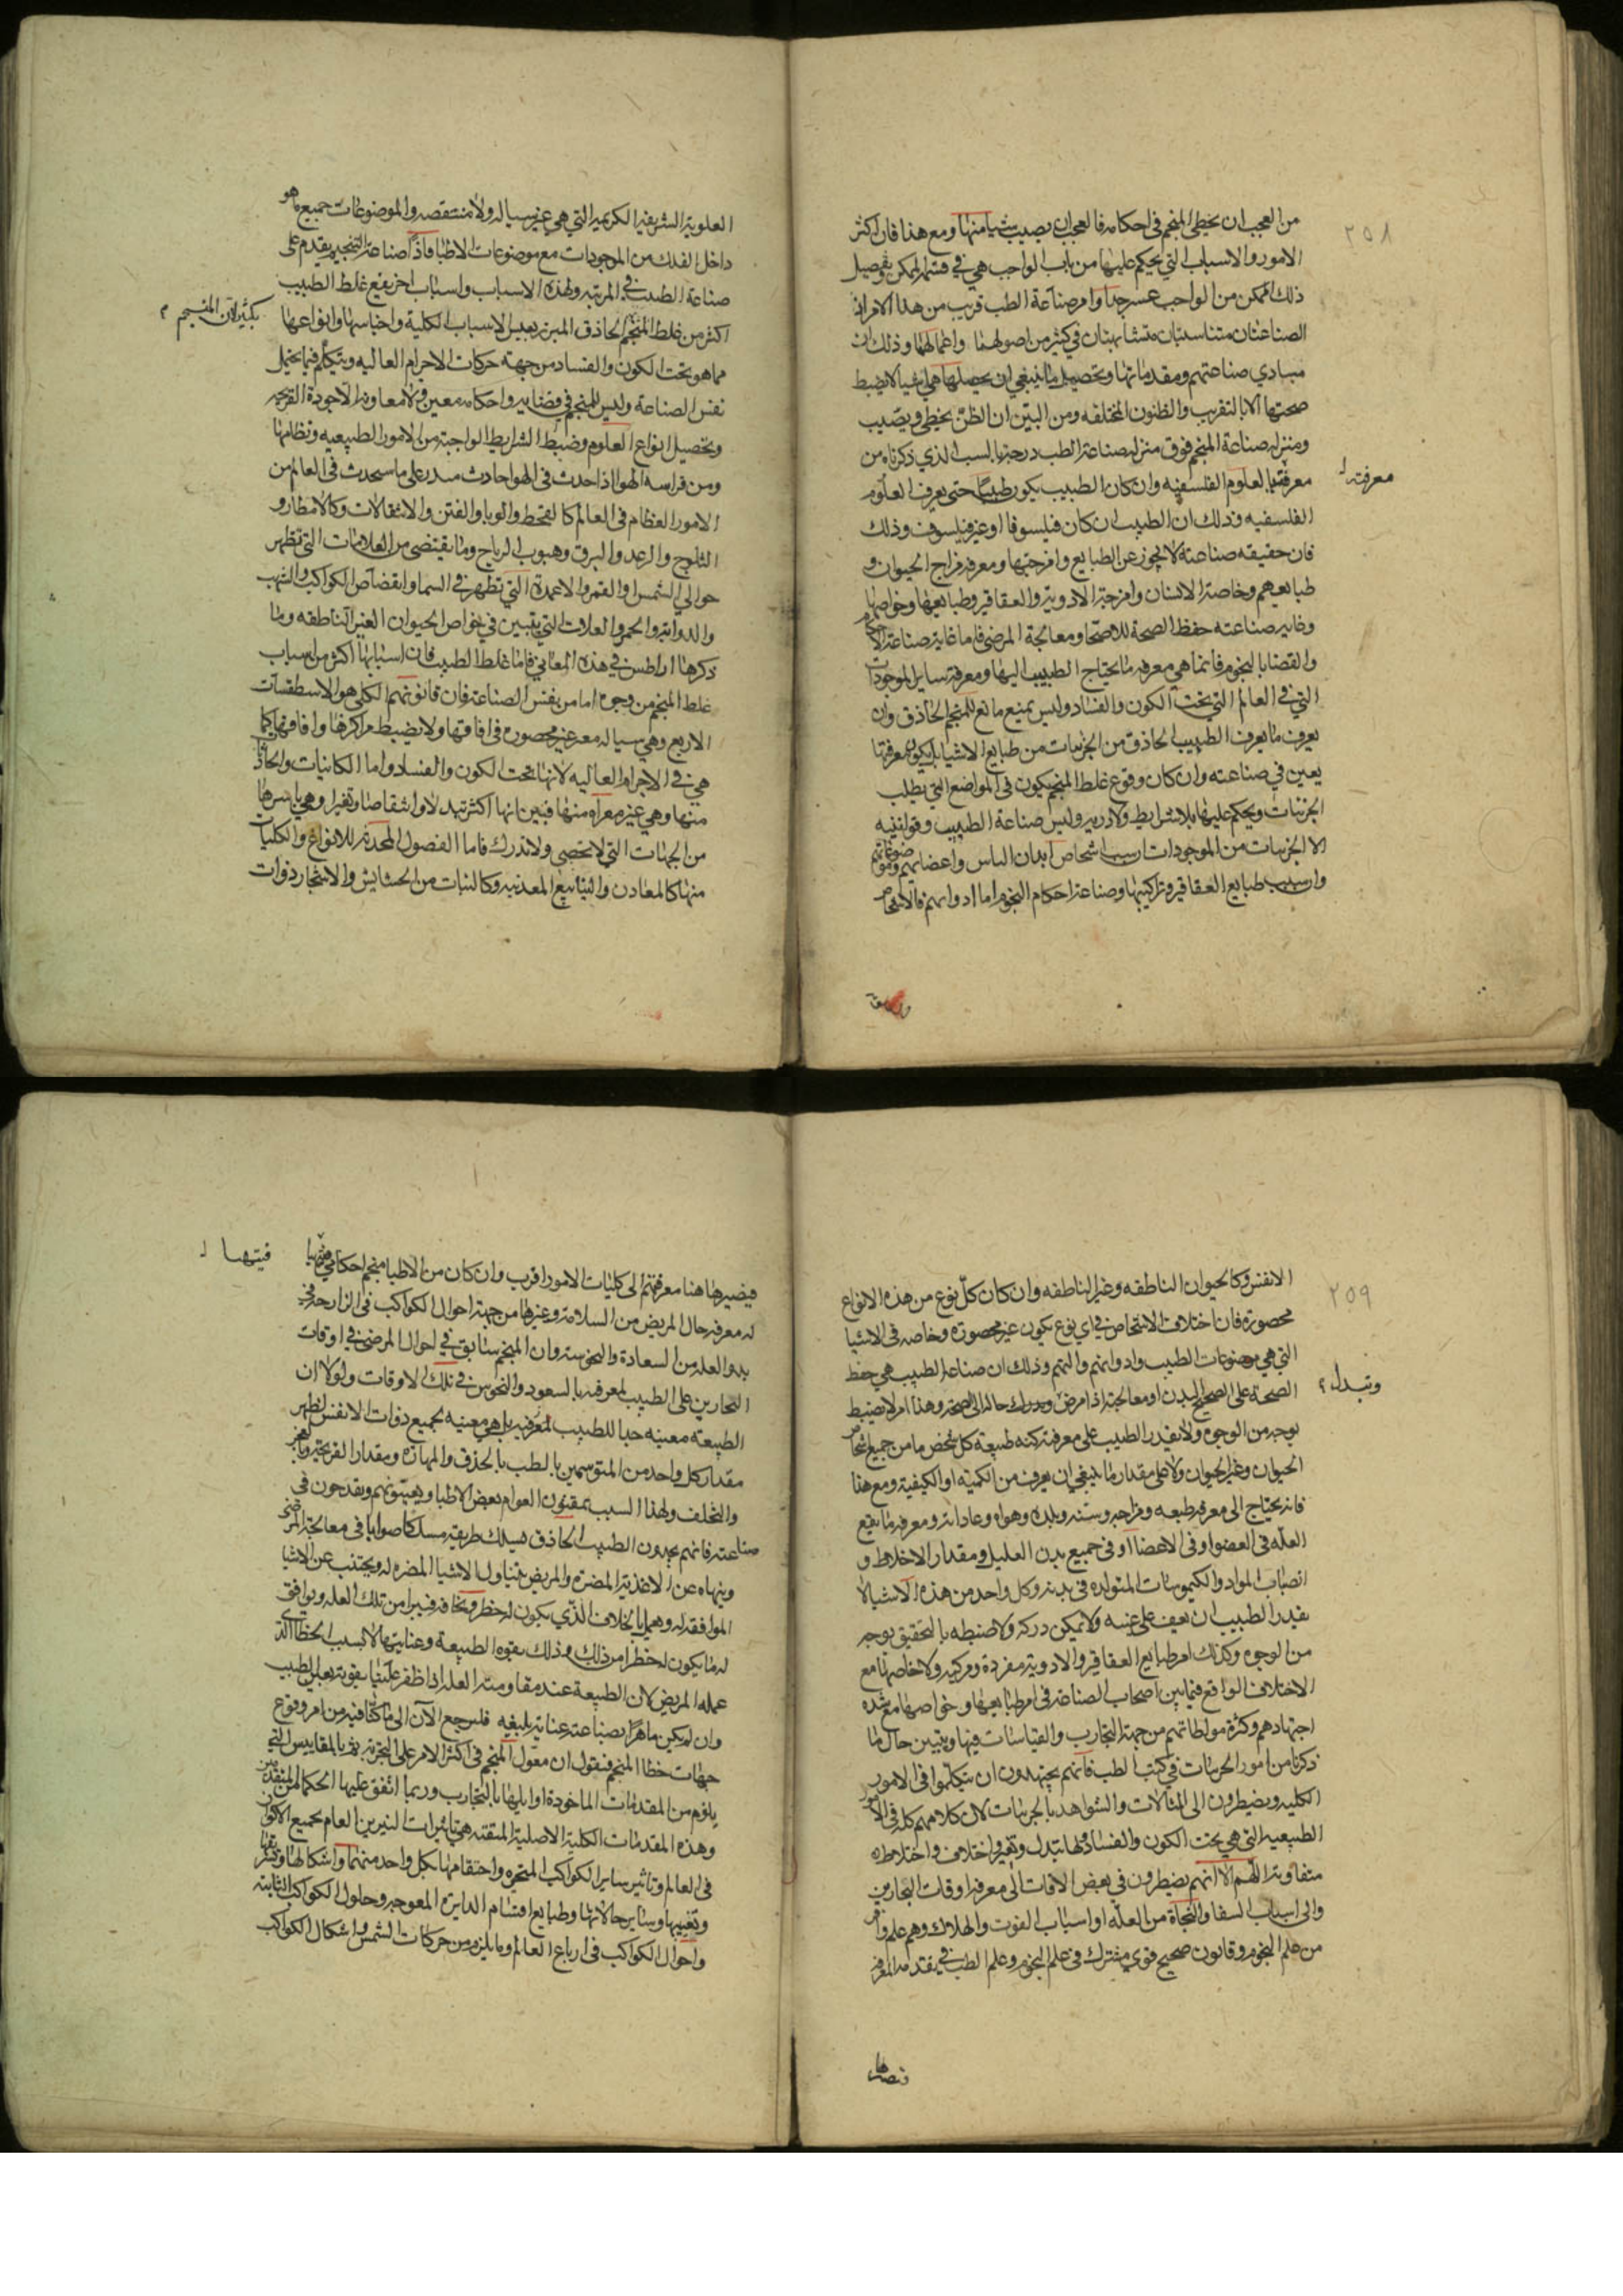 ٢٥٨
من العجب ان يخطئ المنجم فى احكامه فالعجب ان يصيب شيا منها ومع هذا فان اكثر
الامور والاسباب التي يحكم عليها من باب الواجب هي في قسم الممكن وتفصيل
ذلك الممكن من الواجب عسر جدا وامر صناعة الطب قريب من هذا الامر لان
الصناعتان متناسبتان متشابهتان في كثير من اصولهما واعمالهما وذلك ان
مبادي صناعتهم ومقدماتها وتحصيل ما ينبغي ان يحصلها هي اشيا لا يضبط
صحتها الا بالتقريب والظنون المختلفه ومن البين ان الظن يخطي ويصيب
ومنزله صناعة المنجم فوق منزله صناعة الطب درجة بالسبب الذي ذكرناه من
معرفته بالعلوم الفلسفيه وان كان الطبيب يكون طبيبا حتى يعرف العلوم
معرفته
الفلسفيه وذلك ان الطبيب ان كان فيلسوفا او غير فيلسوف وذلك
فان حقيقه صناعته لا يجوز عن الطبايع وامزجتها ومعرفه مزاج الحيوان و
طبايعهم وخاصة الانسان وامزجة الادوية والعقاقير وطبايعها وخواصها
وغايه صناعته حفظ الصحة للاصحا ومعالجة المرضى فاما غاية صناعة الاحكام
والقضايا بالنجوم فانما هي معرفه ما يحتاج الطبيب اليها ومعرفة ساير الموجودات
التي في العالم التي تحت الكون والفساد وليس يمنع مانع للمنجم الحاذق وان
يعرف ما يعرف الطبيب الحاذق من الجزئيات من طبايع الاشيا بل يكون معرفتها
يعين في صناعته وان كان وقوع غلط المنجم يكون فى المواضع التي يطلب
الجزئيات ويحكم عليها بلا شرايط ولا دربه وليس صناعة الطبيب وقوانينه
الا الجزئيات من الموجودات اشخاص ابدان الناس واعضايهم
طبايع العقاقير وتراكيبها وصناعة احكام النجوم اما ادواتهم فالاشخاص
العلوية الشريفه الكريمه التي هي غير سياله ولا منتقصه والموضوعات جميع ما هو
داخل الفلك من الموجودات مع موضوعات الاطبا فاذا صناعة التنجيم يقدم على
صناعة الطب في المرتبه ولهذه الاسباب واسباب اخر يقع غلط الطبيب
اكثر من غلط المنجم الحاذق المبرز بعين الاسباب الكلية واجناسها وانواعها
بكثير لان المنجم
مما هو تحت الكون والفساد من جهة حركات الاجرام العاليه ويتكلم فيما يخيل
نفس الصناعة وليس للمنجم في قضاياه واحكامه معين ولا معاون الا جودة القريحه
وتحصيل انواع العلوم وضبط الشرايط الواجبة من الامور الطبيعيه ونظامها
ومن فراسه الهوا اذا حدث فى الهوا حادث على ما سيحدث فى العالم من
الامور العظام فى العالم كالقحط والوبا والفتن والانتقالات وكالامطار و
الثلوج والرعد والبرق وهبوب الرياح وما يقتضى من العلامات التي تظهر
حوالي الشمس او القمر والاعمدة التي تظهر في السما وانقضاض الكواكب والشهب
والدوابه والحمر والعلامات التي يتبين في خواص الحيوان الغير الناطقه وما
ذكرها اراطس في هذه المعاني فاما غلط الطبيب فان اسبابها اكثر من اسباب
غلط المنجم من وجوه اما من نفس الصناعة فان قانونهم الكلي هو الاسطقسات
الاربع وهي سياله غير محصوره فى افاقها ولا يضبط مراكزها وافاقها كما
هي في الاجرام العاليه لانها تحت الكون والفساد واما الكاينات والحادثات
منها وهي غير معراه منها فبين انها اكثر تبدلا وانتقاصا وتغيرا وهي باسرها
من الجهات التي لا تحصى ولا تدرك فاما الفصول المحدثه للانواع والكليات
منها كالمعادن والينابيع المعدنيه وكالنبات من الحشايش والاشجار ذوات
٢٥٩
الانفس وكالحيوان الناطقه وغير الناطقه وان كان كل نوع من هذه الانواع
محصوره فان اختلاف الاشخاص في اي نوع يكون غير محصوره وخاصه فى الاشيا
التي هي موضوعات الطبيب وادواتهم والتهم وذلك ان صناعة الطبيب هي حفظ
الصحة على الصحيح البدن او معالجة اذا مرض حاله الى الصحه وهذا امر لا يضبط
وتبدل
بوجه من الوجوه ولا يقدر الطبيب على معرفة كنه طبيعة كل شخص ما من جميع اشخاص
الحيوان وغير الحيوان ولا على مقدار ما ينبغي ان يعرف من الكميه او الكيفيه ومع هذا
فانه يحتاج الى معرفه طبعه ومزاجه وسنه وبلده وهواه وعاداته ومعرفه ما يقع
العله فى العضو او فى الاعضا او فى جميع بدن العليل ومقدار الاخلاط و
انصباب المواد والكيموسات المتولده فى بدنه وكل واحد من هذه الاشيا لا
يقدر الطبيب ان يقف على غيبه ولا يمكن دركه ولا ضبطه بالتحقيق بوجه
من الوجوه وكذلك امر طبايع العقاقير والادويه مفردة ومركبه ولا خاصها مع
الاختلاف الواقع فيما بين اصحاب الصناعة فى امر طبايعها وخواصها مع شده
اجتهادهم وكثرة مواظاتهم من جهة التجارب والقياسات فيها ويتبين حال ما
ذكرنا من امور الجزئيات في كتب الطب فانهم يجتهدون ان يتكلموا فى الامور
الكليه ويضطرون الى المثالات والشواهد بالجزئيات لان كلامهم كله فى الامور
الطبيعيه التي هي تحت الكون والفساد فلها تبدل وتغير واختلاف واختلاطه
متفاوته اللهم الا انهم يضطرون في بعض الاوقات الى معرفه اوقات البحارين
والى اسباب الشفا والنجاة من العله او اسباب الموت والهلاك وهم علم وافر
من علم النجوم وقانون صحيح قوي مشترك فى علم النجوم وعلم الطب في تقدمه المعرفه
فيصيرها
فيصيرها هنا معرفتهم الى كليات الامور اقرب وان كان من الاطبا منجم احكامي
فيتهيا
له معرفه حال المريض من السلامه وغيرها من جهة احوال الكواكب فى
بدو العله من السعادة والنحوسه وان المنجم سابق في احوال المرضى في اوقات
البحارين على الطبيب لمعرفته بالسعود والنحوس في تلك الاوقات ولولا ان
الطبيعة معينه جدا للطبيب لمعرفته بل هي معينه لجميع ذوات الانفس لظهر
مقدار كل واحد من المتوسمين بالطب بالحذق والمهاره ومقدار القريحة والعجز
والتخلف ولهذا السبب يمقتون العوام بعض الاطبا ويعيبونهم ويقدحون فى
صناعته فانهم يجدون الطبيب الحاذق يسلك طريقه مسلكا صوابا فى معالجة المرضى
وينهاه عن الاغذية المضره والمريض يتناول الاشيا المضره له ويجتنب عن الاشيا
الموافقه له وهما بخلاف الذي يكون له خطر ومخافه فيبرا من تلك العله ويوافق
له ما يكون له خطر من ذلك وذلك بقوه الطبيعة وعنايتها لا بسبب الخطا الذى
عمله المريض لان الطبيعة عند مقاومة العلة اذا ظفر علتها بقوته يعلى الطبيب
وان لم يكن ماهرا بصناعته عناية بليغه فلنرجع الآن الى ما كنا فيه من امر وقوع
جهات خطا المنجم فنقول ان معول المنجم فى اكثر الامر على التجربه ثم بالمقاييس التي
يلزم من المقدمات الماخوذة اوايلها بالتجارب وربما اتفق عليها الحكما المتقدمين
وهذه المقدمات الكلية الاصلية المتقنه هي تاثيرات النيرين العام لجميع الاكوان
فى العالم وتاثير ساير الكواكب المتحيره وامتزاجها بكل واحد منهما واشكالها وتشريقها
وتغيبها وساير حالاتها وطبايع اقسام الدايره المعوجه وحلول الكواكب الثابته
واحوال الكواكب فى ارباع العالم وما يلزم من حركات الشمس واشكال الكواكب